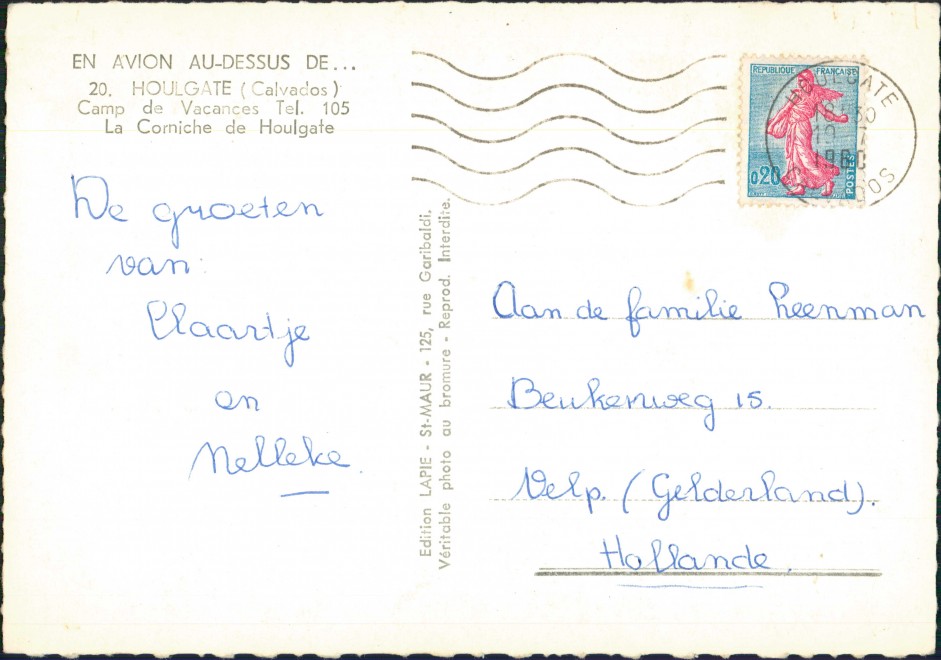 EN AVION AU-DESSUS DE...
20. HOULGATE (Calvados)
Camp de Vacances Tel. 105
La Corniche de Houlgate
De groeten
van:
Klaartje
en
Nelleke.
Edition LAPIE - St-MAUR - 125, rue Garibaldi.
Véritable photo au bromure - Reprod. Interdite.
REPUBLIQUE FRANÇAISE
0,20
POSTES
HOULGATE
1960
CALVADOS
Aan de familie Heenman
Beukenweg 15.
Velp. (Gelderland).
Hollande.